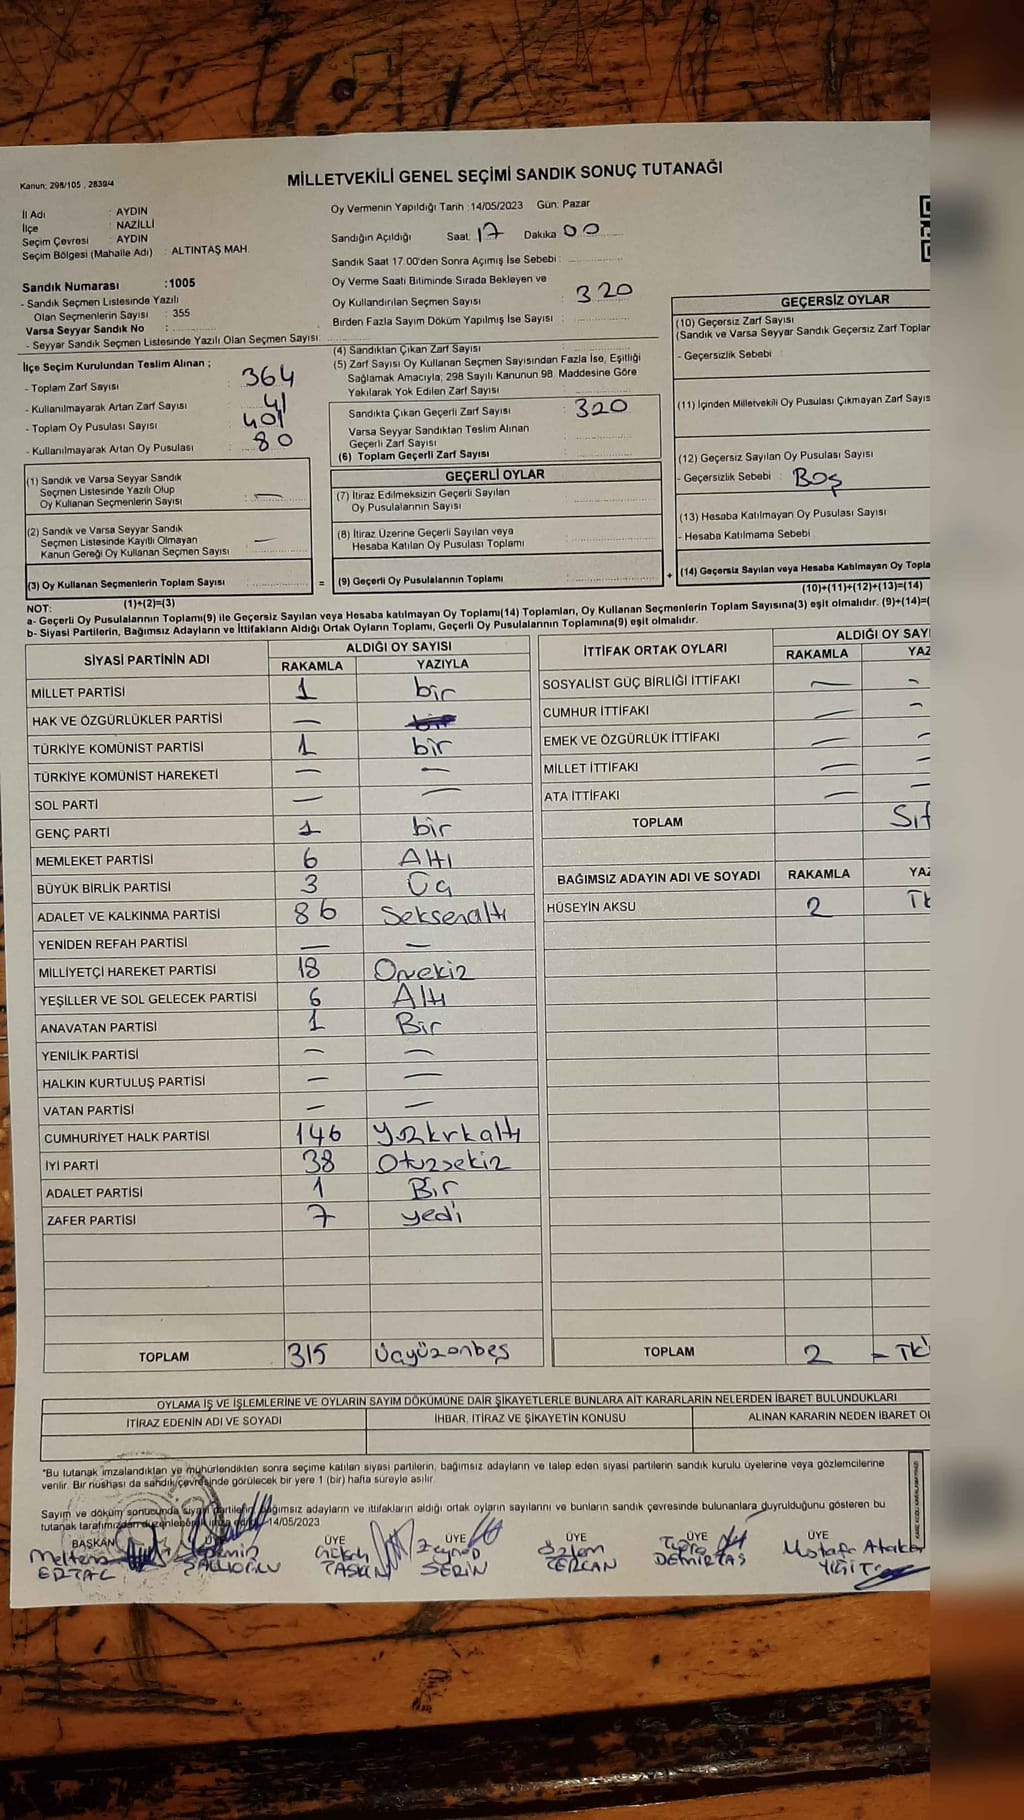 Kanun; 298/105 , 2839/4
MİLLETVEKİLİ GENEL SEÇİMİ SANDIK SONUÇ TUTANAĞI
İl Adı : AYDIN
İlçe : NAZİLLİ
Seçim Çevresi : AYDIN
Seçim Bölgesi (Mahalle Adı) : ALTINTAŞ MAH.
Sandık Numarası :1005
- Sandık Seçmen Listesinde Yazılı
Olan Seçmenlerin Sayısı : 355
Varsa Seyyar Sandık No :
- Seyyar Sandık Seçmen Listesinde Yazılı Olan Seçmen Sayısı:
Oy Vermenin Yapıldığı Tarih :14/05/2023 Gün: Pazar
Sandığın Açıldığı Saat: 17 Dakika 00
Sandık Saat 17:00'den Sonra Açımış İse Sebebi :
Oy Verme Saati Bitiminde Sırada Bekleyen ve
Oy Kullandırılan Seçmen Sayısı : 320
Birden Fazla Sayım Döküm Yapılmış İse Sayısı :
İlçe Seçim Kurulundan Teslim Alınan ;
- Toplam Zarf Sayısı : 364
- Kullanılmayarak Artan Zarf Sayısı : 41
- Toplam Oy Pusulası Sayısı : 401
- Kullanılmayarak Artan Oy Pusulası : 80
(1) Sandık ve Varsa Seyyar Sandık
Seçmen Listesinde Yazılı Olup
Oy Kullanan Seçmenlerin Sayısı : —
(2) Sandık ve Varsa Seyyar Sandık
Seçmen Listesinde Kayıtlı Olmayan
Kanun Gereği Oy Kullanan Seçmen Sayısı : —
(3) Oy Kullanan Seçmenlerin Toplam Sayısı : =
(1)+(2)=(3)
(4) Sandıktan Çıkan Zarf Sayısı :
(5) Zarf Sayısı Oy Kullanan Seçmen Sayısından Fazla İse, Eşitliği
Sağlamak Amacıyla; 298 Sayılı Kanunun 98. Maddesine Göre
Yakılarak Yok Edilen Zarf Sayısı :
Sandıkta Çıkan Geçerli Zarf Sayısı : 320
Varsa Seyyar Sandıktan Teslim Alınan
Geçerli Zarf Sayısı :
(6) Toplam Geçerli Zarf Sayısı :
GEÇERLİ OYLAR
(7) İtiraz Edilmeksizin Geçerli Sayılan
Oy Pusulalarının Sayısı :
(8) İtiraz Üzerine Geçerli Sayılan veya
Hesaba Katılan Oy Pusulası Toplamı :
(9) Geçerli Oy Pusulalarının Toplamı : +
GEÇERSİZ OYLAR
(10) Geçersiz Zarf Sayısı
(Sandık ve Varsa Seyyar Sandık Geçersiz Zarf Toplar
- Geçersizlik Sebebi :
(11) İçinden Milletvekili Oy Pusulası Çıkmayan Zarf Sayıs
(12) Geçersiz Sayılan Oy Pusulası Sayısı
- Geçersizlik Sebebi : Boş
(13) Hesaba Katılmayan Oy Pusulası Sayısı
- Hesaba Katılmama Sebebi :
(14) Geçersiz Sayılan veya Hesaba Katılmayan Oy Topla
(10)+(11)+(12)+(13)=(14)
NOT:
a- Geçerli Oy Pusulalarının Toplamı(9) ile Geçersiz Sayılan veya Hesaba katılmayan Oy Toplamı(14) Toplamları, Oy Kullanan Seçmenlerin Toplam Sayısına(3) eşit olmalıdır. (9)+(14)=(
b- Siyasi Partilerin, Bağımsız Adayların ve İttifakların Aldığı Ortak Oyların Toplamı, Geçerli Oy Pusulalarının Toplamına(9) eşit olmalıdır.
SİYASİ PARTİNİN ADI ALDIĞI OY SAYISI
RAKAMLA YAZIYLA
MİLLET PARTİSİ 1 bir
HAK VE ÖZGÜRLÜKLER PARTİSİ —
TÜRKİYE KOMÜNİST PARTİSİ 1 bir
TÜRKİYE KOMÜNİST HAREKETİ — —
SOL PARTİ — —
GENÇ PARTİ 1 bir
MEMLEKET PARTİSİ 6 Altı
BÜYÜK BİRLİK PARTİSİ 3 Üç
ADALET VE KALKINMA PARTİSİ 86 Seksenaltı
YENİDEN REFAH PARTİSİ — —
MİLLİYETÇİ HAREKET PARTİSİ 18 Onsekiz
YEŞİLLER VE SOL GELECEK PARTİSİ 6 Altı
ANAVATAN PARTİSİ 1 Bir
YENİLİK PARTİSİ — —
HALKIN KURTULUŞ PARTİSİ — —
VATAN PARTİSİ — —
CUMHURİYET HALK PARTİSİ 146 Yüzkırkaltı
İYİ PARTİ 38 Otuzsekiz
ADALET PARTİSİ 1 Bir
ZAFER PARTİSİ 7 yedi
TOPLAM 315 Üçyüzonbeş
İTTİFAK ORTAK OYLARI ALDIĞI OY SAYI
RAKAMLA YAZ
SOSYALİST GÜÇ BİRLİĞİ İTTİFAKI — —
CUMHUR İTTİFAKI — —
EMEK VE ÖZGÜRLÜK İTTİFAKI — —
MİLLET İTTİFAKI — —
ATA İTTİFAKI — —
TOPLAM Sıf
BAĞIMSIZ ADAYIN ADI VE SOYADI RAKAMLA YAZ
HÜSEYİN AKSU 2 İk
TOPLAM 2 - İki
OYLAMA İŞ VE İŞLEMLERİNE VE OYLARIN SAYIM DÖKÜMÜNE DAİR ŞİKAYETLERLE BUNLARA AİT KARARLARIN NELERDEN İBARET BULUNDUKLARI
İTİRAZ EDENİN ADI VE SOYADI İHBAR, İTİRAZ VE ŞİKAYETİN KONUSU ALINAN KARARIN NEDEN İBARET OL
*Bu tutanak imzalandıktan ve mühürlendikten sonra seçime katılan siyasi partilerin, bağımsız adayların ve talep eden siyasi partilerin sandık kurulu üyelerine veya gözlemcilerine
verilir. Bir nüshası da sandık çevresinde görülecek bir yere 1 (bir) hafta süreyle asılır.
Sayım ve döküm sonucunda siyasi partilerin, bağımsız adayların ve ittifakların aldığı ortak oyların sayılarını ve bunların sandık çevresinde bulunanlara duyrulduğunu gösteren bu
tutanak tarafımızdan düzenlenerek 14/05/2023
BAŞKAN ÜYE ÜYE ÜYE ÜYE ÜYE
Meltem ERTAÇ
Gökah TAŞKIN
Zeynep SERİN
Özlem TERCAN
Tuğra DEMİRTAŞ
Mustafa YİĞİT